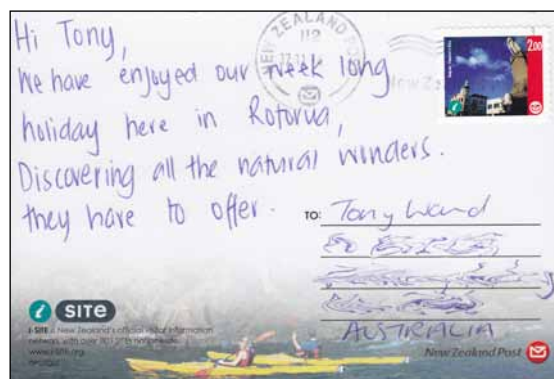 Hi Tony,
We have enjoyed our week long
holiday here in Rotorua,
Discovering all the natural wonders.
they have to offer.
NEW ZEALAND
2.00
TO: Tony Ward
AUSTRALIA
i SITE
i-SITE New Zealand's official visitor information
network with over 80
www.i-site.org
New Zealand Post